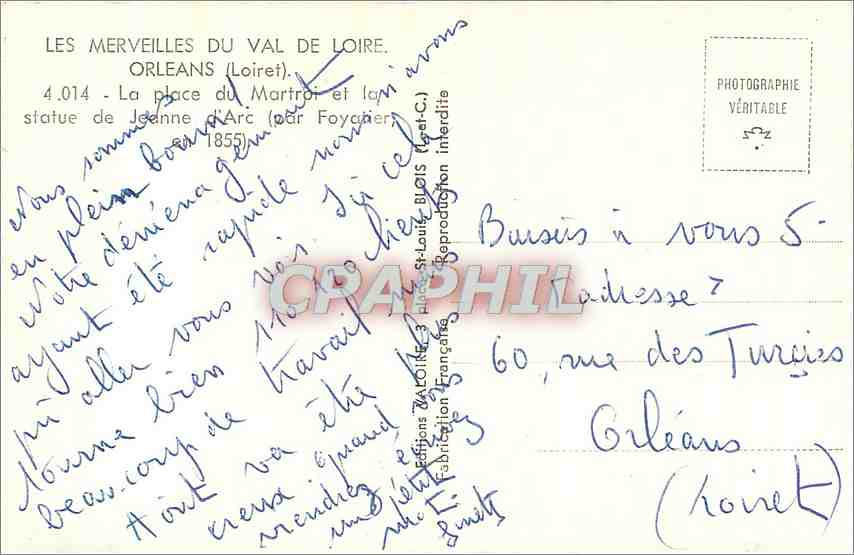 LES MERVEILLES DU VAL DE LOIRE.
ORLEANS (Loiret).
4.014 - La place du Martroi et la
statue de Jeanne d'Arc (par Foyatier,
en 1855)
Nous sommes
en plein boum!
Notre déménagement
ayant été rapide nous n'avons
pu aller vous voir. Ici cela
tourne bien 110 120 clients
beaucoup de travail mais
Août va être plus
creux quand vous
viendrez écrivez
un petit
mot.
Ginette
Editions VALOIRE, 3 place St-Louis, BLOIS (L.-et-C.)
Fabrication Française Reproduction interdite
CPAPHIL
PHOTOGRAPHIE
VÉRITABLE
Baisers à vous 5-
adresse?
60, rue des Turcies
Orléans
(Loiret)